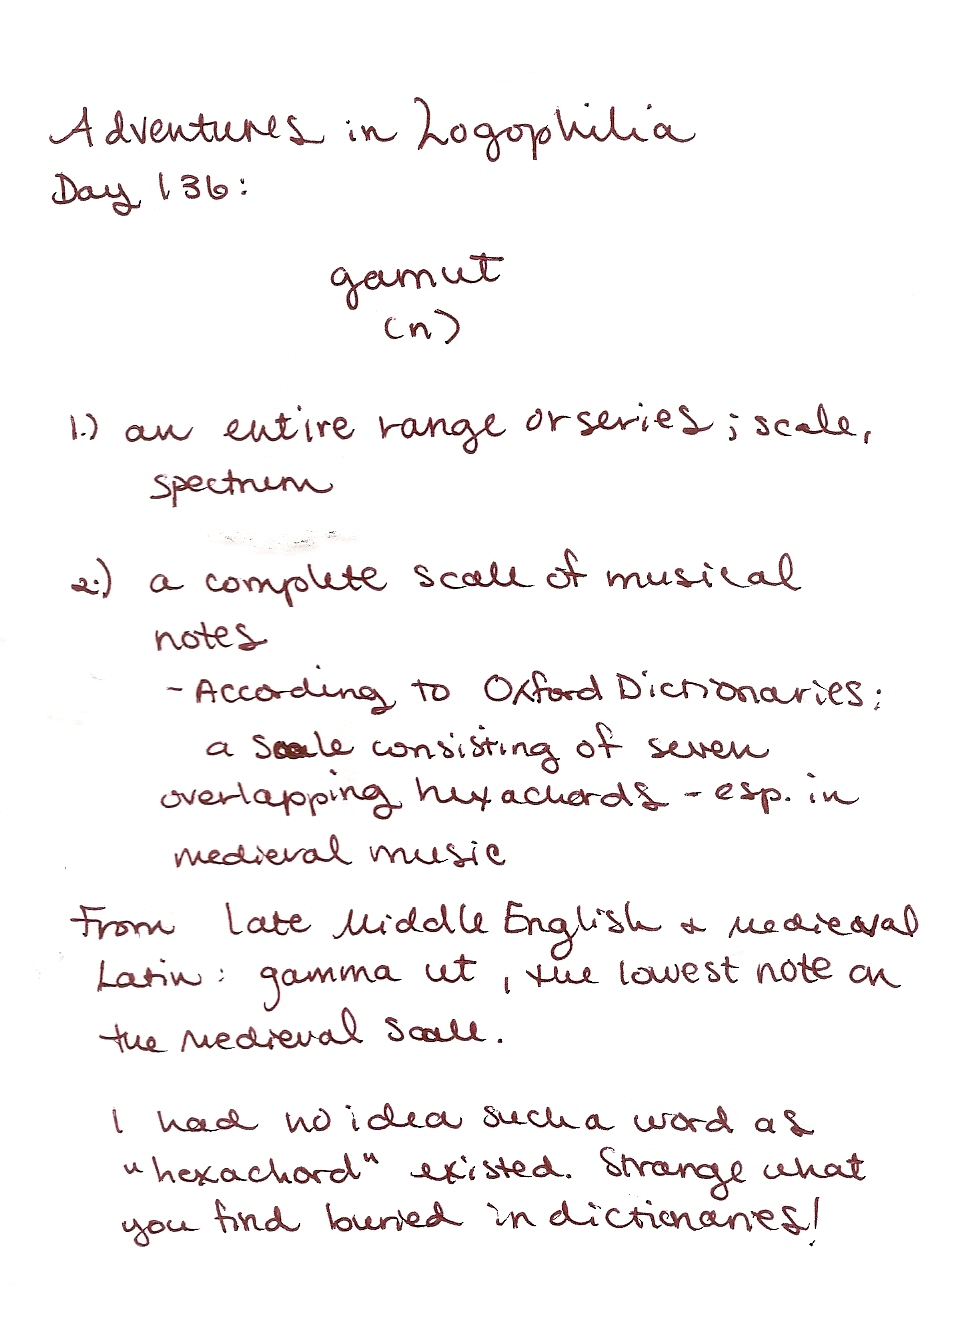 Adventures in Logophilia
Day 136:
gamut
(n)
1.) an entire range or series; scale,
spectrum
2.) a complete scale of musical
notes
- According to Oxford Dictionaries:
a scale consisting of seven
overlapping hexachords - esp. in
medieval music
From late Middle English & Medieval
Latin: gamma ut, the lowest note on
the medieval scale.
I had no idea such a word as
"hexachord" existed. Strange what
you find buried in dictionaries!